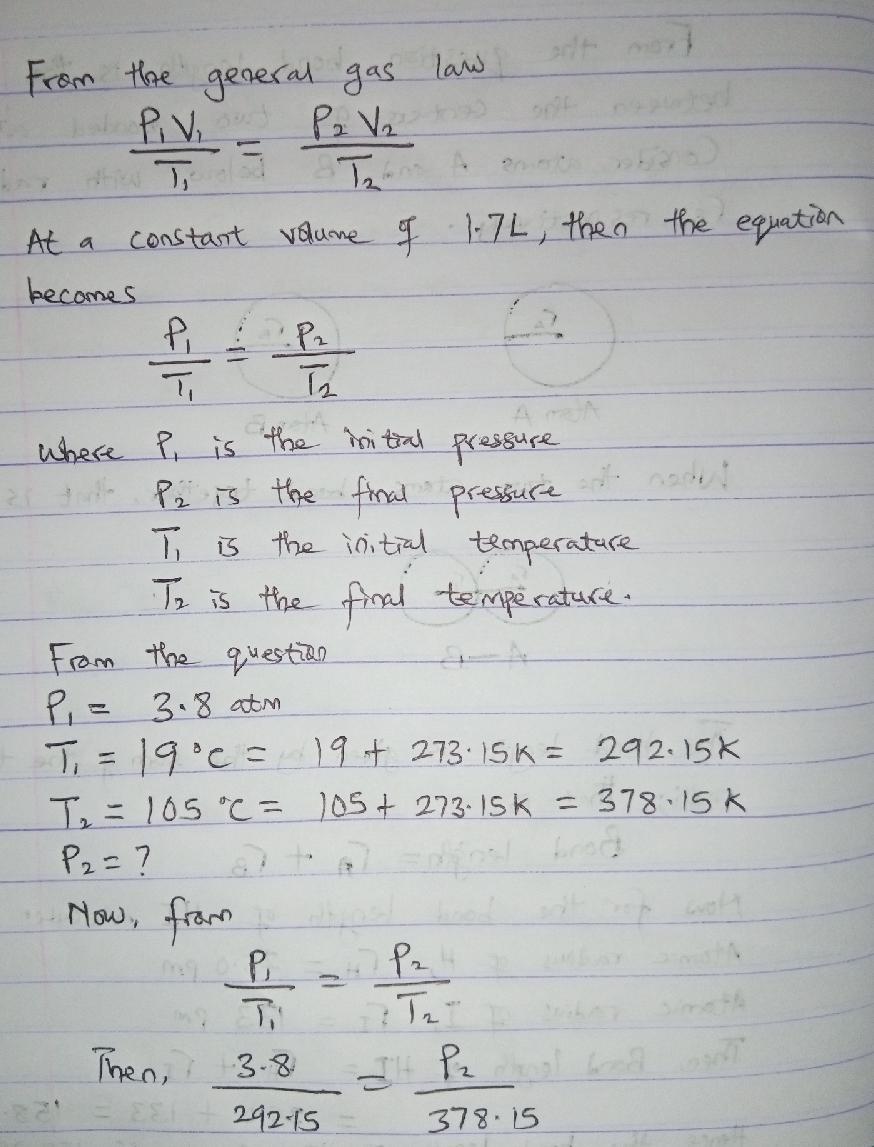 From the general gas law
P₁V₁/T₁ = P₂V₂/T₂
At a constant volume of 1.7L, then the equation
becomes
P₁/T₁ = P₂/T₂
where P₁ is the initial pressure
P₂ is the final pressure
T₁ is the initial temperature
T₂ is the final temperature.
From the question
P₁ = 3.8 atm
T₁ = 19°C = 19 + 273.15K = 292.15K
T₂ = 105 °C = 105 + 273.15K = 378.15K
P₂ = ?
Now, from
P₁/T₁ = P₂/T₂
Then, 3.8/292.15 = P₂/378.15